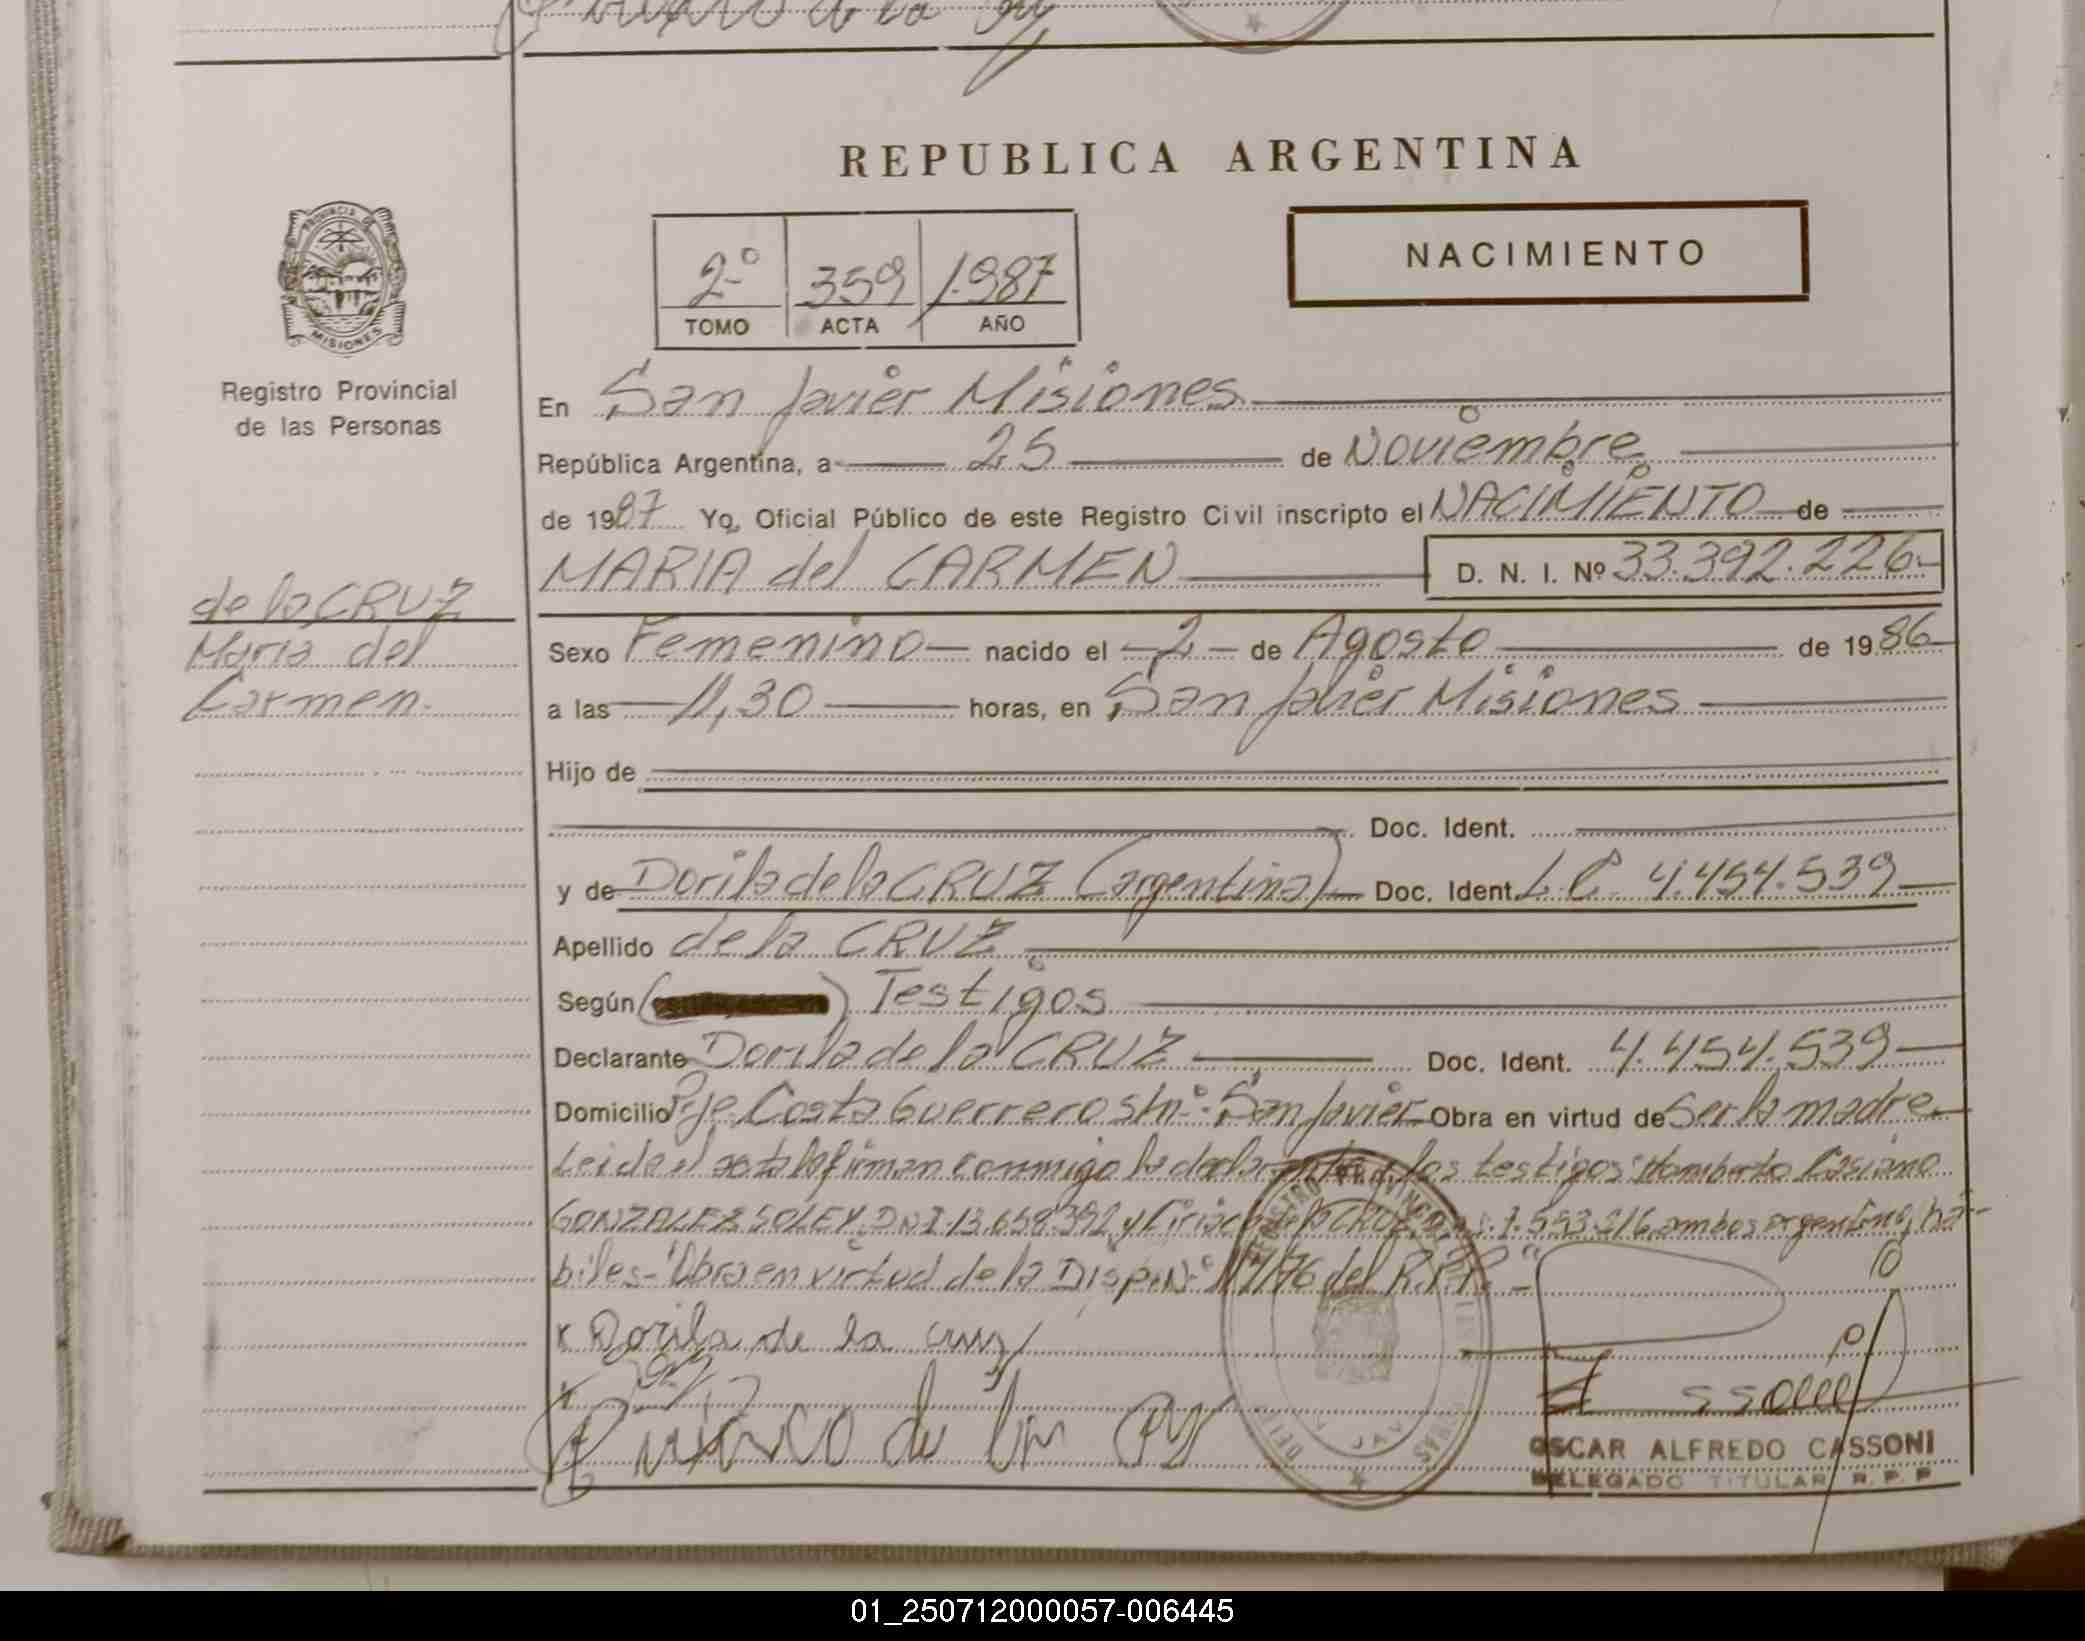 REPUBLICA ARGENTINA
NACIMIENTO
2º 359 1.987
TOMO ACTA AÑO
PROVINCIA DE
MISIONES
Registro Provincial
de las Personas
En San Javier Misiones
República Argentina, a 25 de Noviembre
de 1987 Yo, Oficial Público de este Registro Civil inscripto el NACIMIENTO de
MARIA del CARMEN D. N. I. Nº 33.392.226-
de la CRUZ
Maria del
Carmen.
Sexo Femenino nacido el -2- de Agosto de 1986
a las 11,30 horas, en San Javier Misiones
Hijo de
Doc. Ident.
y de Dorila de la CRUZ (argentina) Doc. Ident. L.C. 4.454.539
Apellido de la CRUZ
Según ( ) Testigos
Declarante Dorila de la CRUZ Doc. Ident. 4.454.539
Domicilio Pje. Costa Guerrero s/n-: San Javier Obra en virtud de Ser la madre
Leida el acta la firman conmigo la declarante y los testigos Casiano
GONZALEZ SOLEY D.N.I. 13.658.392 y Ciriaco de la CRUZ ambos argentinos, há-
biles-"Obra en virtud de la Disp. Nº /76 del R.P.P."-
x Dorila de la cruz
OSCAR ALFREDO CASSONI
DELEGADO TITULAR R.P.P
01_250712000057-006445